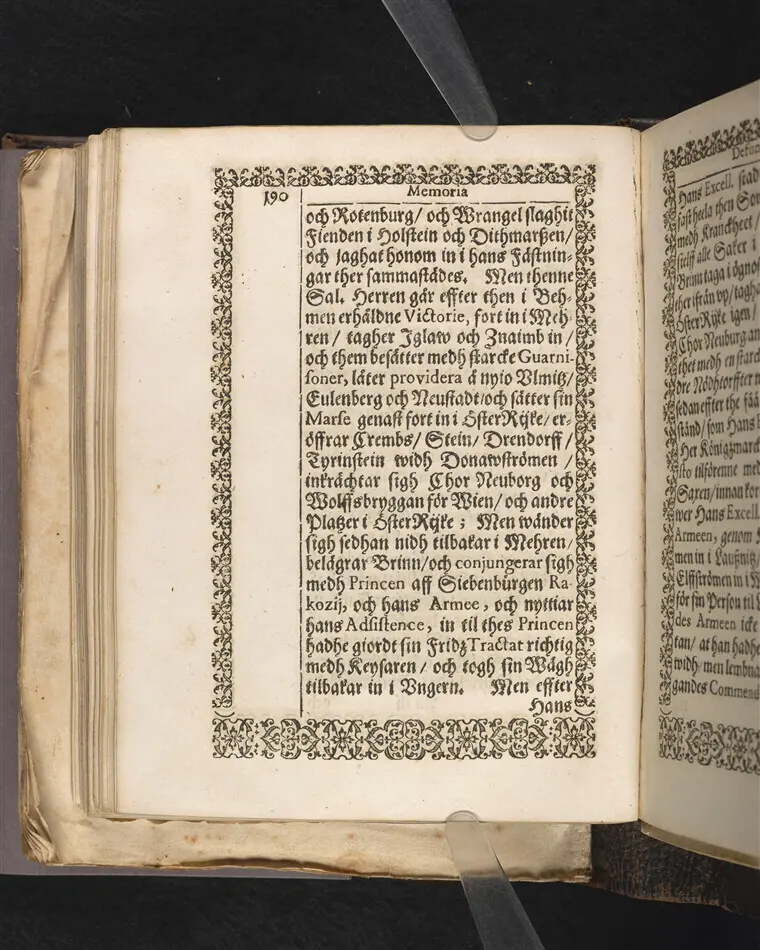 190
Memoria
och Rotenburg/ och Wrangel slaghit
Fienden i Holstein och Dithmarßen/
och jaghat honom in i hans Fästnin-
gar ther sammastädes. Men thenne
Sal. Herren går effter then i Beh-
men erhåldne Victorie, fort in i Meh-
ren/ tagher Jglaw och Znaimb in/
och them besätter medh starcke Guarni-
soner, låter providera å nyio Vlmitz/
Eulenberg och Neustadt/och sätter sin
Marse genast fort in i ÖsterRijke/ er-
öffrar Crembs/ Stein/ Drendorff/
Tyrinstein widh Donawströmen /
inkräcktar sigh Chor Neuborg och
Wolffsbryggan för Wien/ och andre
Platzer i ÖsterRijke; Men wänder
sigh sedhan nidh tilbakar i Mehren/
belägrar Brinn/och conjungerar sigh
medh Princen aff Siebenbürgen Ra-
kozij, och hans Armee, och nyttiar
hans Adsistence, in til thes Princen
hadhe giordt sin FridzTractat richtig
medh Keysaren/ och togh sin Wägh
tilbakar in i Vngern. Men effter
Hans
Hans Excell. stad
fast heela then Som
medh Kranckheet/
sielff alle Saker i
Brinn taga i ögno
ther ifrån vp/ tagha
ÖsterRijke igen/
Chor Neuburg an
thet medh en starck
dre Nödhtorffter
sedan effter the
stånd/ som Hans
Her Königzmarck
sto tilförenne med
Saxen/innan
wer Hans Excell.
Armeen, genom
men in i Laußnitz/
Elffströmen in i
för sin Person til
des Armeen icke
tan/ at han hadhe
widh/ men
gandes Commend